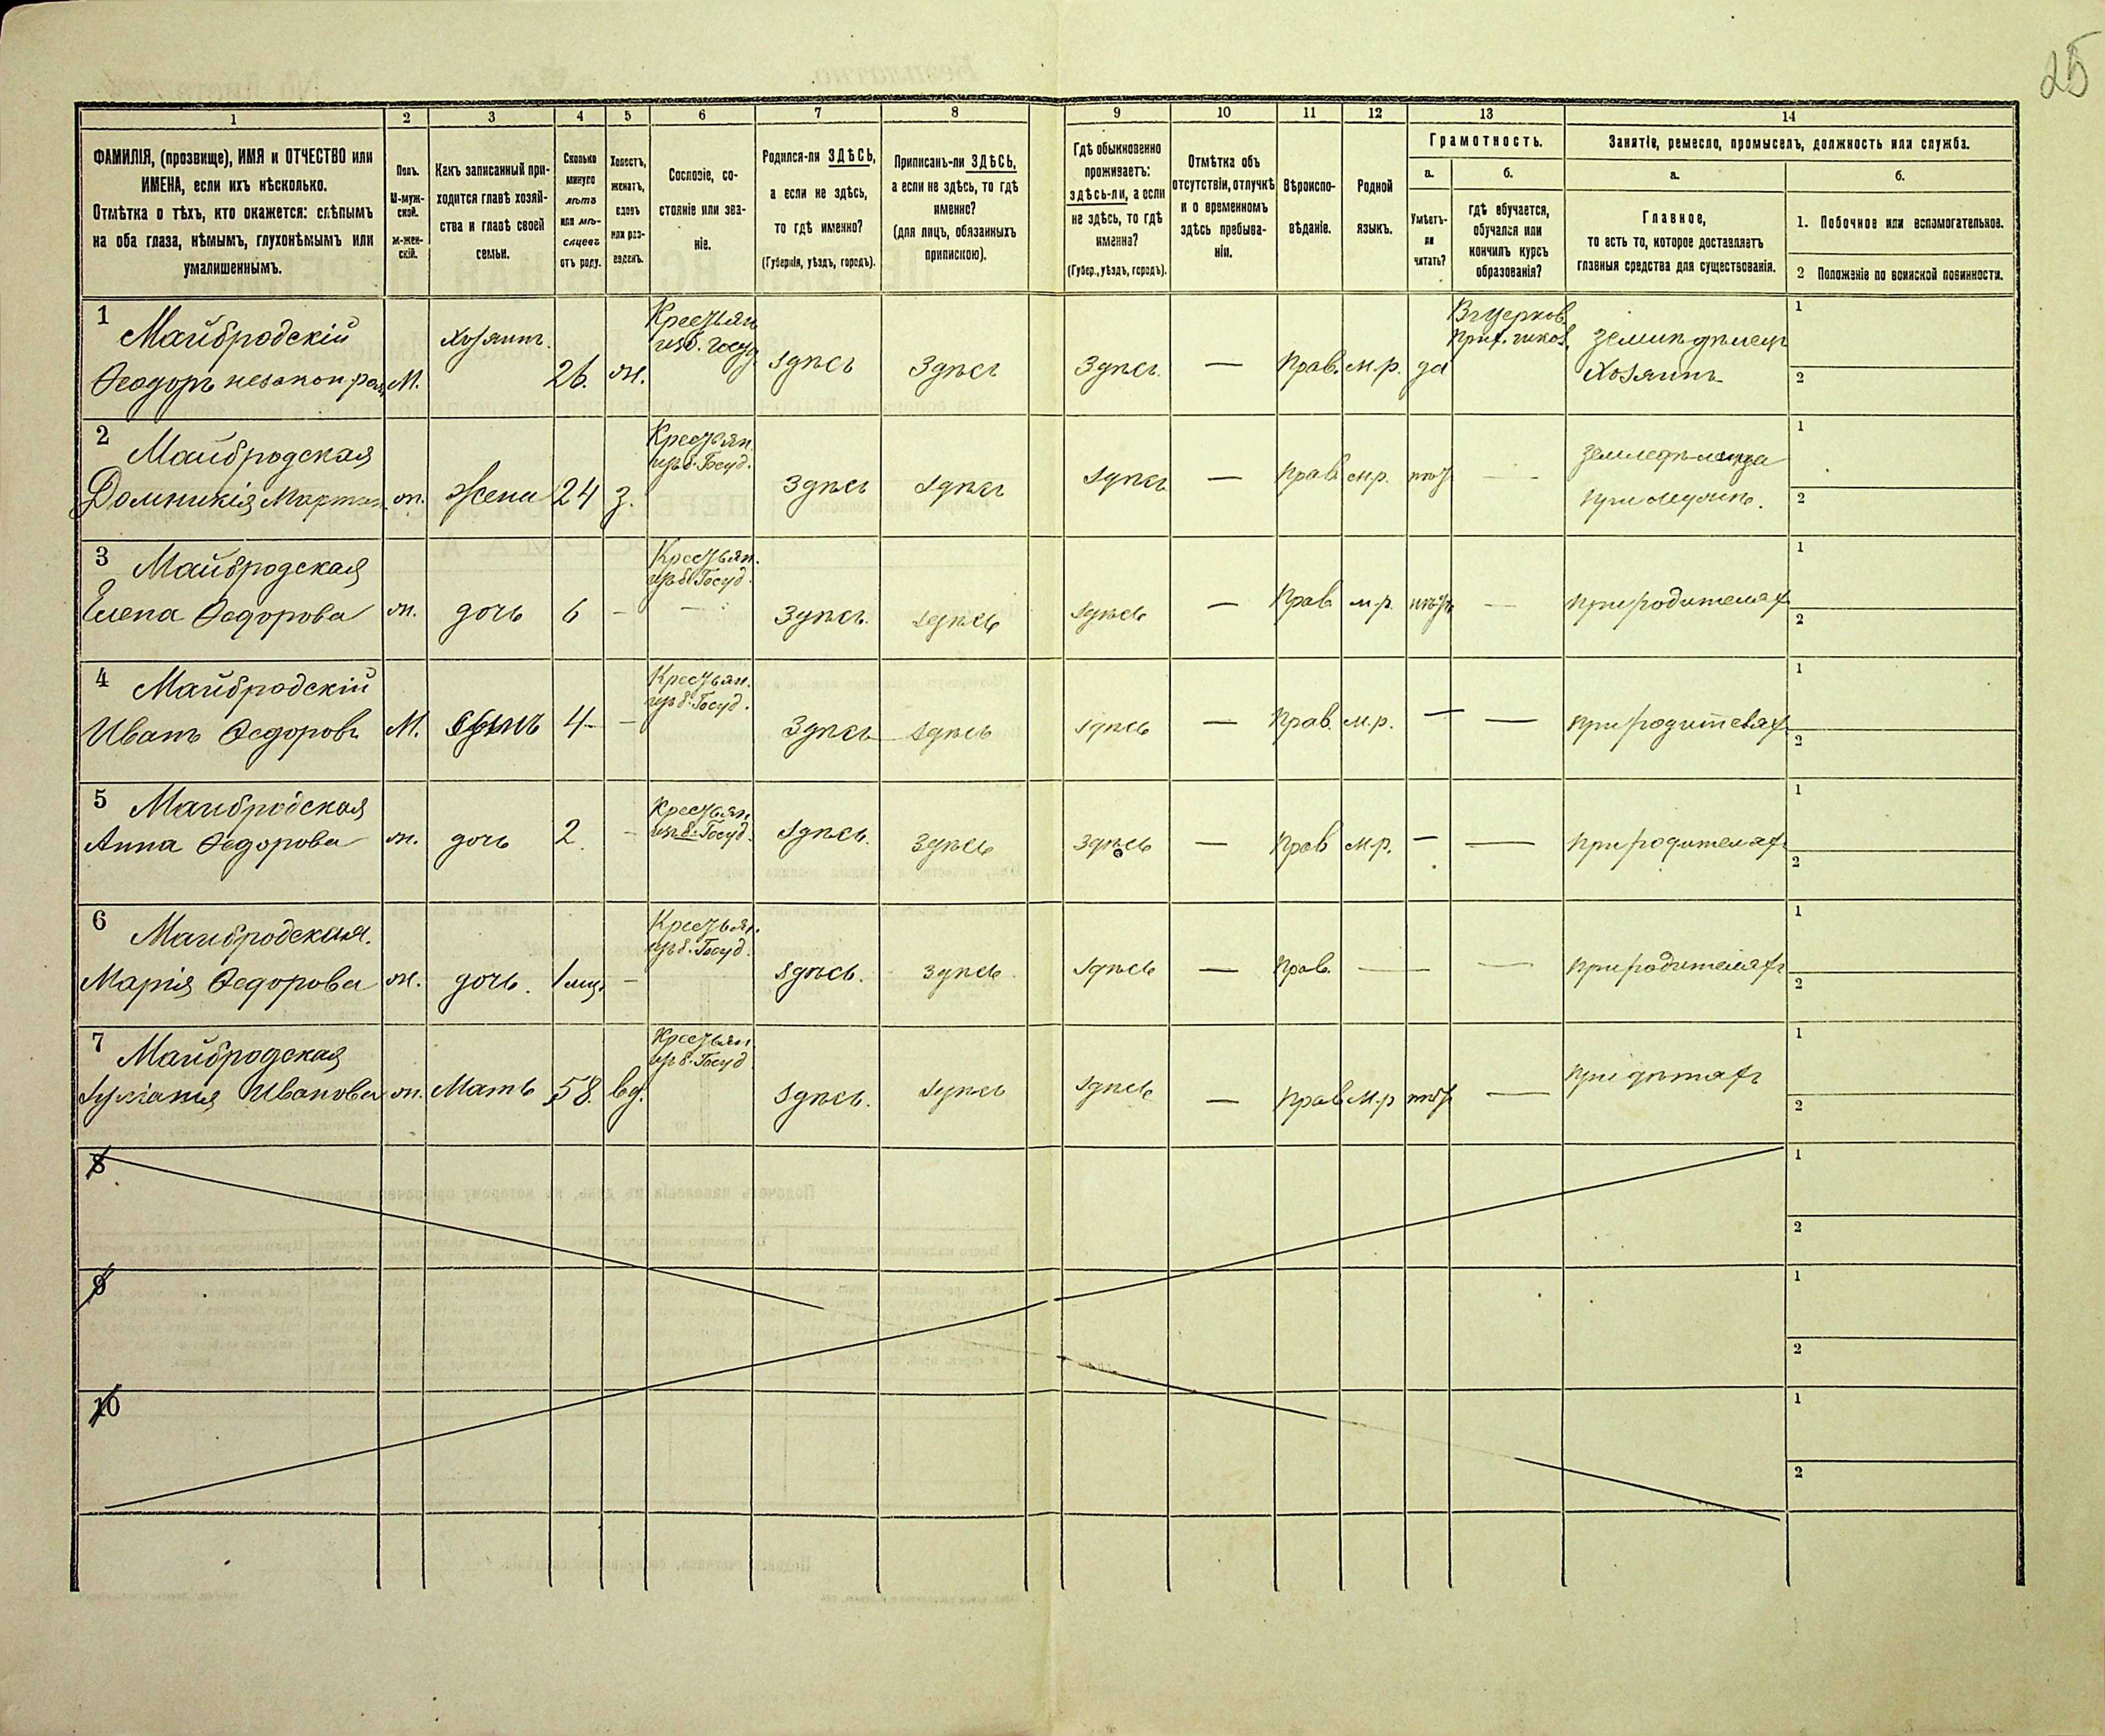 25
1
2
3
4
5
6
7
8
9
10
11
12
13
14
ФАМИЛІЯ, (прозвище), ИМЯ и ОТЧЕСТВО или
ИМЕНА, если ихъ нѣсколько.
Отмѣтка о тѣхъ, кто окажется: слѣпымъ
на оба глаза, нѣмымъ, глухонѣмымъ или
умалишеннымъ.
Полъ.
М-муж-
ской.
ж-жен-
скій.
Какъ записанный при-
ходится главѣ хозяй-
ства и главѣ своей
семьи.
Сколько
минуло
лѣтъ
или мѣ-
сяцевъ
отъ роду.
Холостъ,
женатъ,
вдовъ
или раз-
веденъ.
Сословіе, со-
стояніе или зва-
ніе.
Родился-ли ЗДѢСЬ,
а если не здѣсь,
то гдѣ именно?
(Губернія, уѣздъ, городъ).
Приписанъ-ли ЗДѢСЬ,
а если не здѣсь, то гдѣ
именно?
(для лицъ, обязанныхъ
припискою).
Гдѣ обыкновенно
проживаетъ:
здѣсь-ли, а если
не здѣсь, то гдѣ
именно?
(Губер., уѣздъ, городъ).
Отмѣтка объ
отсутствіи, отлучкѣ
и о временномъ
здѣсь пребыва-
ніи.
Вѣроиспо-
вѣданіе.
Родной
языкъ.
Грамотность.
а.
Умѣетъ-
ли
читать?
б.
гдѣ обучается,
обучался или
кончилъ курсъ
образованія?
Занятіе, ремесло, промыселъ, должность или служба.
а.
Главное,
то есть то, которое доставляетъ
главныя средства для существованія.
б.
1. Побочное или вспомогательное.
2 Положеніе по воинской повинности.
1
Майбродскій
Ѳеодоръ незакон рож
М.
хозяинъ.
26.
ж.
Крестьян
изъ б. госуд
здѣсь
Здѣсь
Здѣсь
—
Прав.
м.р.
да
Въ церков.
прих. школ.
Хозяинъ
1
2
2
Майбродская
Домникія
ж.
жена
24
з.
Крестьян.
изъ б. Госуд.
Здѣсь
здѣсь
здѣсь
—
Прав
м.р.
нѣтъ
—
при мужѣ.
1
2
3
Майбродская
Елена Ѳедорова
ж.
дочь
6
-
Крестьян.
изъ б. Госуд.
Здѣсь.
здѣсь
здѣсь
—
Прав
м.р.
нѣтъ
—
при родителяхъ
1
2
4
Майбродскій
Иванъ Ѳедоровъ
М.
сынъ
4
-
Крестьян.
изъ б. Госуд.
Здѣсь
здѣсь
здѣсь
—
Прав.
м.р.
—
—
при родителяхъ
1
2
5
Майбродская
Анна Ѳедорова
ж.
дочь
2.
-
Крестьян.
изъ б. Госуд.
здѣсь.
здѣсь
здѣсь
—
Прав
м.р.
—
—
при родителяхъ
1
2
6
Майбродская.
Марія Ѳедорова
ж.
дочь.
1 мц.
-
Крестьян.
изъ б. Госуд.
здѣсь.
здѣсь.
здѣсь
—
Прав.
—
—
при родителяхъ
1
2
7
Майбродская
Иванова
ж.
Мать
58.
вд.
Крестьян.
изъ б. Госуд
здѣсь.
здѣсь
здѣсь
—
Прав
м.р
нѣтъ
—
при дѣтяхъ
1
2
8
1
2
9
1
2
10
1
2